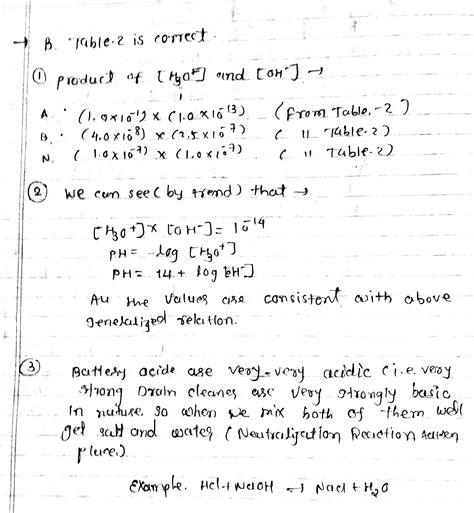 → B. Table-2 is correct.
① product of [H3O+] and [OH-] →
A. (1.0×10-1) × (1.0×10-13) (from Table-2)
B. (4.0×10-8) × (2.5×10-7) ( 11 Table.2)
N. (1.0×10-7) × (1.0×10-7) ( 11 Table-2)
② we can see (by trend) that →
[H3O+]× [OH-] = 10-14
PH= -log [H3O+]
PH= 14 + log [OH-]
All the values are consistent with above
generalized relation.
③ Battery acids are very-very acidic (i.e. very
strong Drain cleaner are very strongly basic
in nature. so when we mix both of them we'll
get salt and water (Neutralization Reaction taken
place.)
Example. Hcl + NaOH → Nacl + H2O